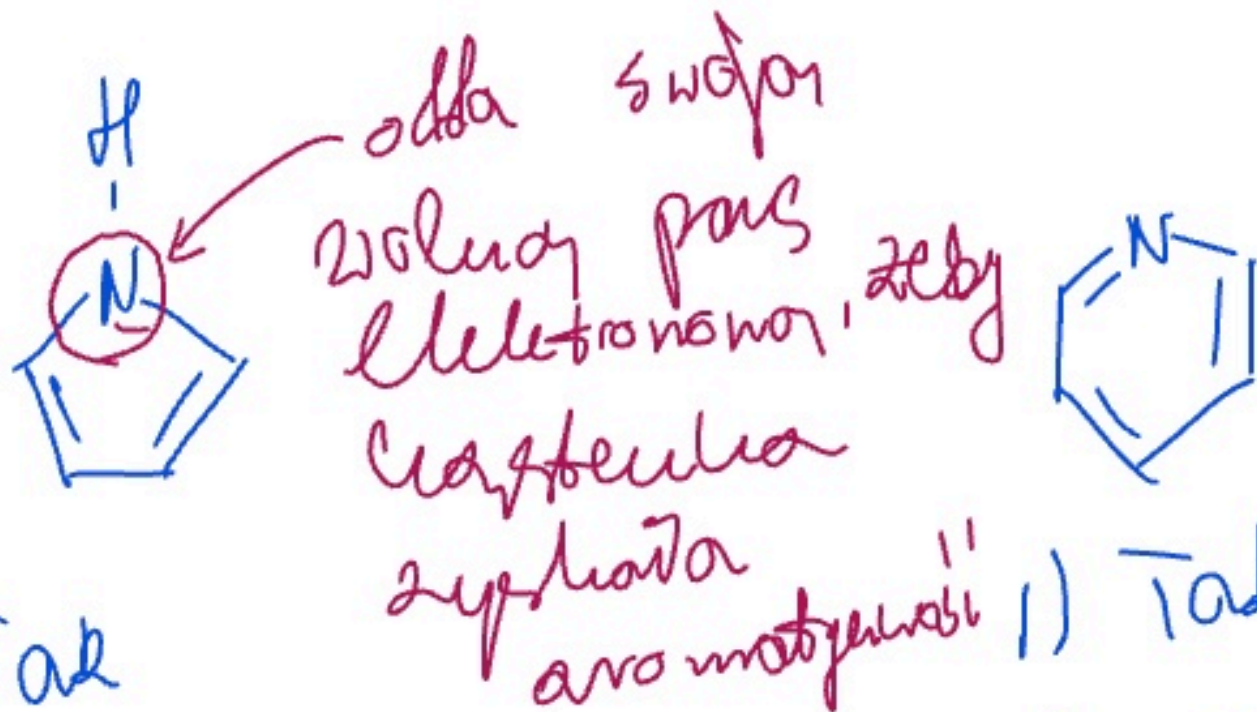 H
N
odda swoją
wolną parę
elektronową, żeby
cząsteczka
zyskała
aromatyczność"
N
Tak
1) Tak